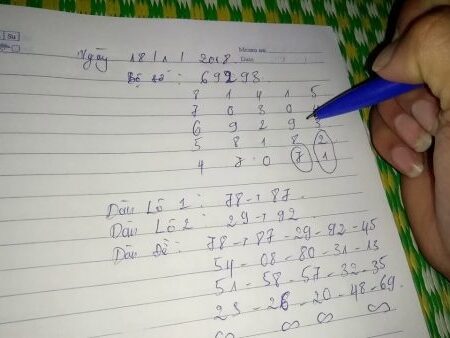 Ngày 18/1/2018
Bộ số : 69298
8 1 4 1 5
7 0 3 0 4
6 9 2 9 3
5 8 1 8 2
4 7 0 7 1
Dàn Lô 1 : 78 - 87
Dàn Lô 2 : 29 - 92
Dàn Đề : 78 - 87 - 29 - 92 - 45
54 - 08 - 80 - 31 - 13
51 - 58 - 57 - 32 - 35
23 - 26 - 20 - 48 - 69.
∞ ∞ ∞ ∞